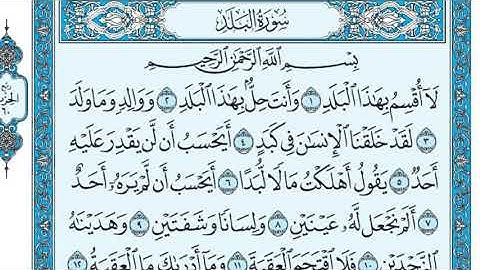 سُورَةُ الْبَلَدِ
بِسْمِ اللَّهِ الرَّحْمَٰنِ الرَّحِيمِ
لَآ أُقْسِمُ بِهَٰذَا الْبَلَدِ ١ وَأَنتَ حِلٌّۢ بِهَٰذَا الْبَلَدِ ٢ وَوَالِدٍ وَمَا وَلَدَ
٣ لَقَدْ خَلَقْنَا الْإِنسَٰنَ فِى كَبَدٍ ٤ أَيَحْسَبُ أَن لَّن يَقْدِرَ عَلَيْهِ
أَحَدٌ ٥ يَقُولُ أَهْلَكْتُ مَالًا لُّبَدًا ٦ أَيَحْسَبُ أَن لَّمْ يَرَهُۥٓ أَحَدٌ
٧ أَلَمْ نَجْعَل لَّهُۥ عَيْنَيْنِ ٨ وَلِسَانًا وَشَفَتَيْنِ ٩ وَهَدَيْنَٰهُ
النَّجْدَيْنِ ١٠ فَلَا اقْتَحَمَ الْعَقَبَةَ ١١ وَمَآ أَدْرَىٰكَ مَا الْعَقَبَةُ ١٢
ربع
الحزب
٦٠